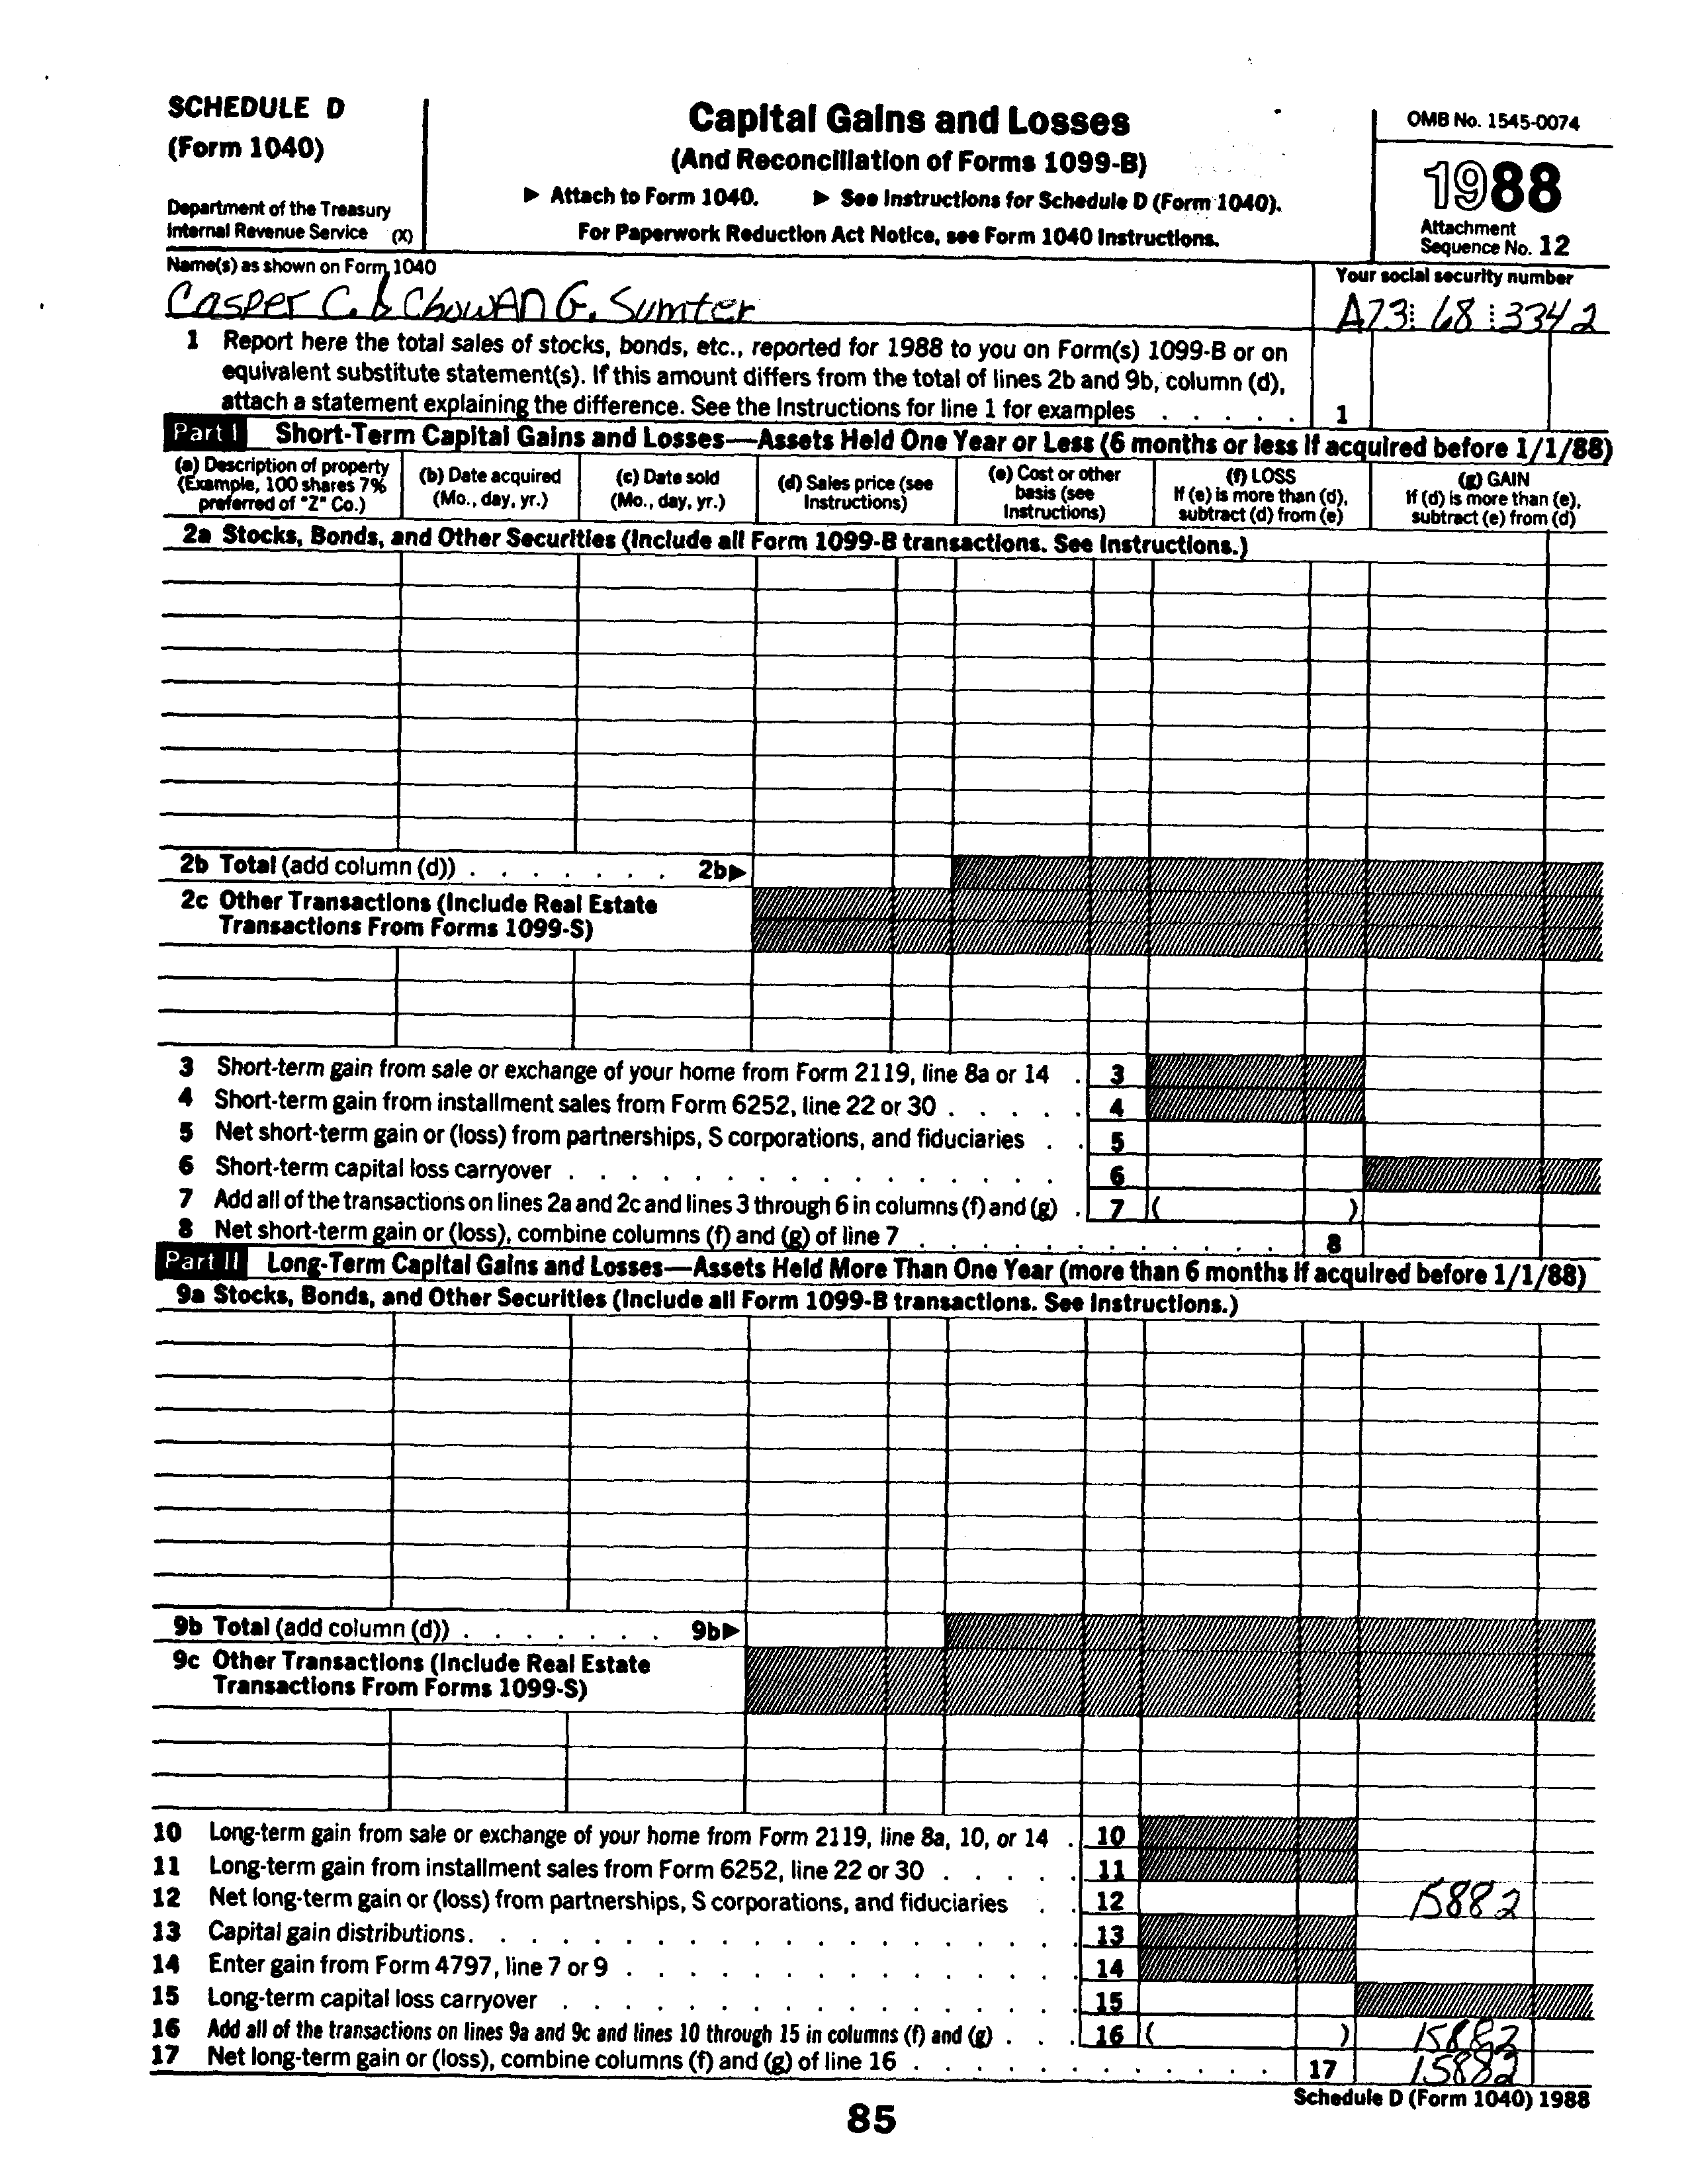 SCHEDULE D
(Form 1040)
Department of the Treasury
Internal Revenue Service (X)
Capital Gains and Losses
(And Reconciliation of Forms 1099-B)
▶ Attach to Form 1040. ▶ See Instructions for Schedule D (Form 1040).
For Paperwork Reduction Act Notice, see Form 1040 Instructions.
OMB No. 1545-0074
1988
Attachment
Sequence No. 12
Name(s) as shown on Form 1040
Casper C. & Chowan G. Sumter
Your social security number
A73 68 3342
1 Report here the total sales of stocks, bonds, etc., reported for 1988 to you on Form(s) 1099-B or on
equivalent substitute statement(s). If this amount differs from the total of lines 2b and 9b, column (d),
attach a statement explaining the difference. See the Instructions for line 1 for examples . . . . . 1
Part I Short-Term Capital Gains and Losses—Assets Held One Year or Less (6 months or less if acquired before 1/1/88)
(a) Description of property
(Example, 100 shares 7%
preferred of "Z" Co.)
(b) Date acquired
(Mo., day, yr.)
(c) Date sold
(Mo., day, yr.)
(d) Sales price (see
Instructions)
(e) Cost or other
basis (see
Instructions)
(f) LOSS
If (e) is more than (d),
subtract (d) from (e)
(g) GAIN
If (d) is more than (e),
subtract (e) from (d)
2a Stocks, Bonds, and Other Securities (Include all Form 1099-B transactions. See Instructions.)
2b Total (add column (d)) . . . . . . . 2b▶
2c Other Transactions (Include Real Estate
Transactions From Forms 1099-S)
3 Short-term gain from sale or exchange of your home from Form 2119, line 8a or 14 . 3
4 Short-term gain from installment sales from Form 6252, line 22 or 30 . . . . . 4
5 Net short-term gain or (loss) from partnerships, S corporations, and fiduciaries . . 5
6 Short-term capital loss carryover . . . . . . . . . . . . . . . 6
7 Add all of the transactions on lines 2a and 2c and lines 3 through 6 in columns (f) and (g) . 7 ( )
8 Net short-term gain or (loss), combine columns (f) and (g) of line 7 . . . . . . . . . . . . 8
Part II Long-Term Capital Gains and Losses—Assets Held More Than One Year (more than 6 months if acquired before 1/1/88)
9a Stocks, Bonds, and Other Securities (Include all Form 1099-B transactions. See Instructions.)
9b Total (add column (d)) . . . . . . . 9b▶
9c Other Transactions (Include Real Estate
Transactions From Forms 1099-S)
10 Long-term gain from sale or exchange of your home from Form 2119, line 8a, 10, or 14 . 10
11 Long-term gain from installment sales from Form 6252, line 22 or 30 . . . . . 11
12 Net long-term gain or (loss) from partnerships, S corporations, and fiduciaries . . 12 15882
13 Capital gain distributions. . . . . . . . . . . . . . . . . . . 13
14 Enter gain from Form 4797, line 7 or 9 . . . . . . . . . . . . . . 14
15 Long-term capital loss carryover . . . . . . . . . . . . . . . . 15
16 Add all of the transactions on lines 9a and 9c and lines 10 through 15 in columns (f) and (g) . . . 16 ( ) 15882
17 Net long-term gain or (loss), combine columns (f) and (g) of line 16 . . . . . . . . . . . . 17 15882
Schedule D (Form 1040) 1988
85